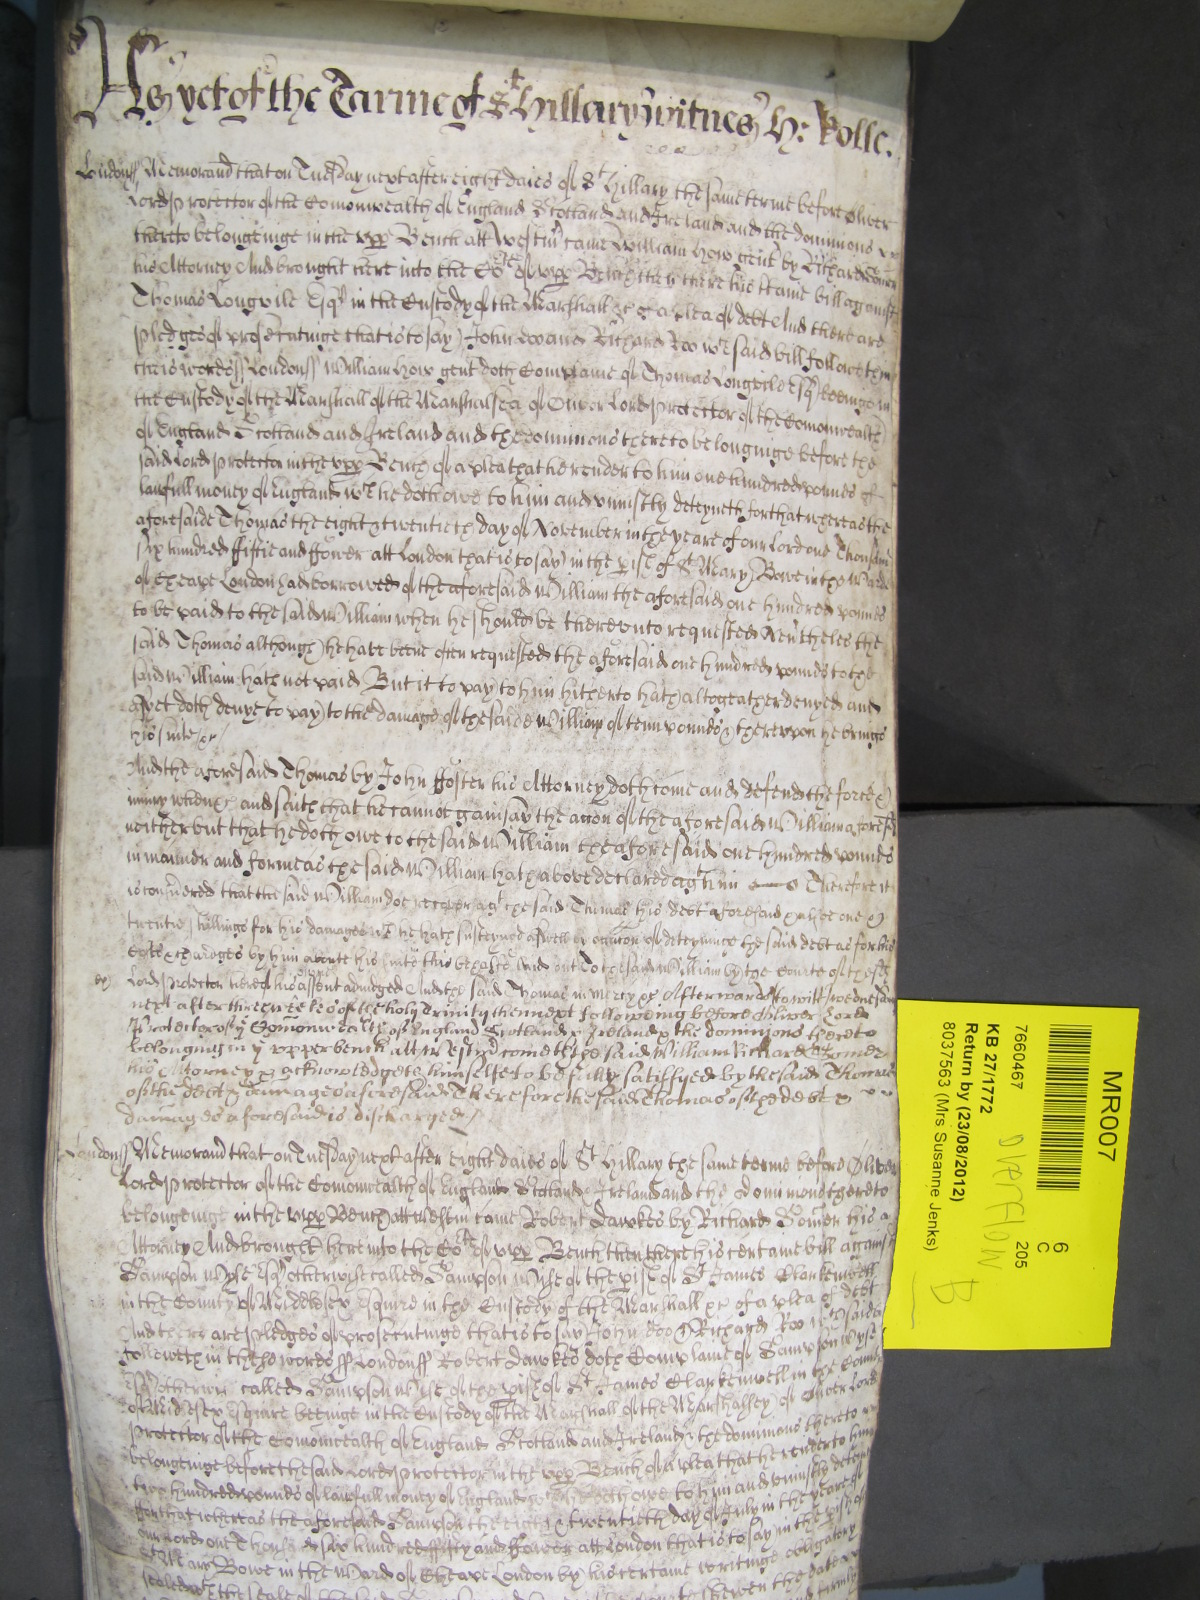 As yet of the Tearme of St Hillary witnes H: Rolle.
Londonss Memorand that on Tuesday next after eight daies of St Hillary the same terme before Oliver
Lord Protector of the Comonwealth of England Scotland and Ireland and the dominions
thereto belongeinge in the upp Bench att Westmr came William How gent by Richard
his Attorney And brought here into the Cort of upp Bench then there his certaine bill against
Thomas Longvile Esqr in the Custody of the Marshall &c of a plea of debt And there are
pledges of prosecutinge that is to say John Doo and Richard Roo wch said bill followeth in
theis wordes ss Londonss William How gent doth Complaine of Thomas Longvile Esqr beeinge in
the Custody of the Marshall of the Marshalsea of Oliver Lord Protector of the Comonwealth
of England Scotland and Ireland and the dominions thereto belonginge before the
said Lord Protector in the upp Bench of a plea that he render to him one hundred pounds of
lawfull money of England wch he doth owe to him and uniustly deteyneth for that whereas the
aforesaide Thomas the eight & twentieth day of November in the yeare of our Lord one Thousand
six hundred fiftie and ffower att London that is to say in the pish of St Mary Bowe in the Warde
of Cheape London had borrowed of the aforesaid William the aforesaid one hundred pounds
to be paid to the said William when he should be thereunto requested Nevtheles the
said Thomas although he have beene often requested the aforesaid one hundred pounds to the
said William hath not paid But it to pay to him hitherto hath altogeather denyed and
as yet doth denye to pay to the damage of the saide William of tenn pounds & thereupon he brings
his suite &c
And the aforesaid Thomas by John ffoster his Attorney doth come and defend the force &
iniury when &c and saith that he cannot gainsay the accon of the aforesaid William aforesd
neither but that he doth owe to the said William the aforesaid one hundred pounds
in manner and forme as the said William hath above declared agt him Therefore it
is considered that the said William doe recover agt the said Thomas his debt aforesaid &
twentie shillings for his damages wch he hath susteyned aswell by occasion of deteyninge the said debt as for his
Costs & charges by him aboute his suite in this behalfe laid out To the said William by the Courte of the sd
Lord Protector here of his assent adiudged And the said Thomas in mercy &c Afterwards to witt wednesday
next after three weekes of the holy Trinity then next following before Oliver Lord
Protector of ye Comonwealth of England Scotland & Ireland & the dominions thereto
belonging in ye upper bench att Westmr cometh the said William by Richard
his Attorney & acknowledgeth himselfe to be fully satisfyed by the said Thomas
of the debt & damages aforesaid Therefore the said Thomas of the debt &
damages aforesaid is discharged
Londonss Memorand that on Tuesday next after eight daies of St Hillary the same terme before Oliver
Lord Protector of the Comonwealth of England Scotland & Ireland and the dominions thereto
belongeinge in the upp Bench att Westm came Robert Dawkes by Richard his
Attorney And brought here into the Cort of upp Bench then there his certaine bill against
Sampson Wyse Esqr otherwise called Sampson Wyse of the pish of St James Clarkenwell
in the County of Middlesex Esquire in the Custody of the Marshall &c of a plea of debt
And there are pledges of prosecutinge that is to say John Doo & Richard Roo wch said bill
followeth in these wordes ss Londonss Robert Dawkes doth Complaine of Sampson Wyse
Esqr otherwise called Sampson Wyse of the pish of St James Clarkenwell in the County
of Middlesex Esquire beeinge in the Custody of the Marshall of the Marshallsey of Oliver Lord
Protector of the Comonwealth of England Scotland and Ireland & the dominions thereto
belongeinge before the said Lord Protector in the upp Bench of a plea that he render to him
two hundred pounds of lawfull money of England wch he doth owe to him and uniustly deteyneth
ffor that whereas the aforesaid Sampson the eight & twentieth day of July in the yeare of
our Lord one Thousand six hundred fifty and ffower att London that is to say in the pish of
St Mary Bowe in the Ward of Cheape London by his certaine writinge obligatory
MR007
6
C
205
7660467
KB 27/1772
Return by (23/08/2012)
8037563 (Mrs Susanne Jenks)
OVERFLOW
B